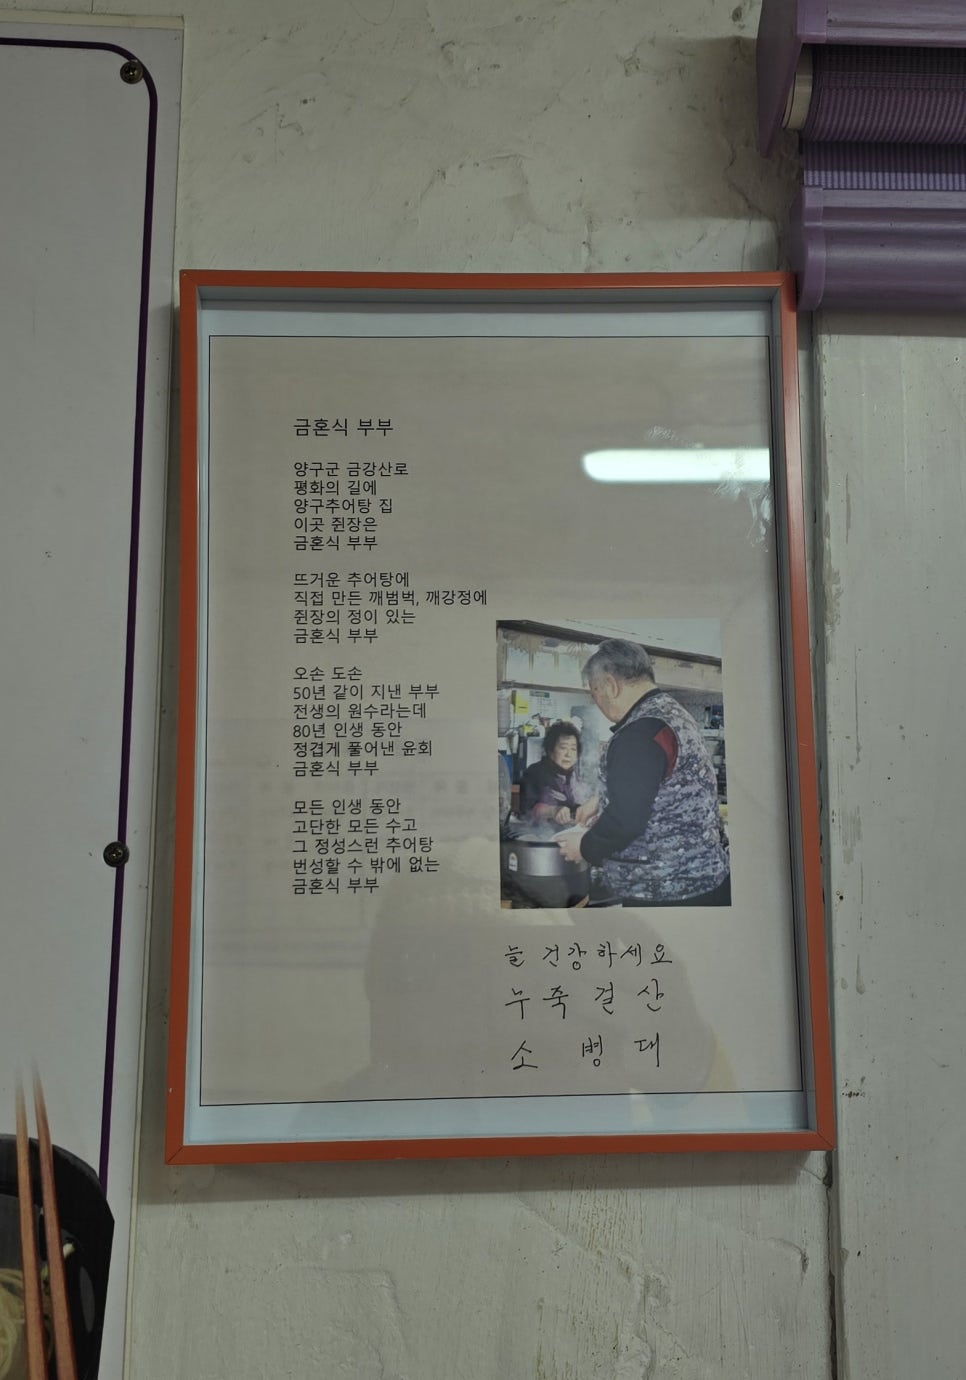 금혼식 부부
양구군 금강산로
평화의 길에
양구추어탕 집
이곳 쥔장은
금혼식 부부
뜨거운 추어탕에
직접 만든 깨범벅, 깨강정에
쥔장의 정이 있는
금혼식 부부
오손 도손
50년 같이 지낸 부부
전생의 원수라는데
80년 인생 동안
정겹게 풀어낸 윤회
금혼식 부부
모든 인생 동안
고단한 모든 수고
그 정성스런 추어탕
번성할 수 밖에 없는
금혼식 부부
늘 건강하세요
결산
소 병대